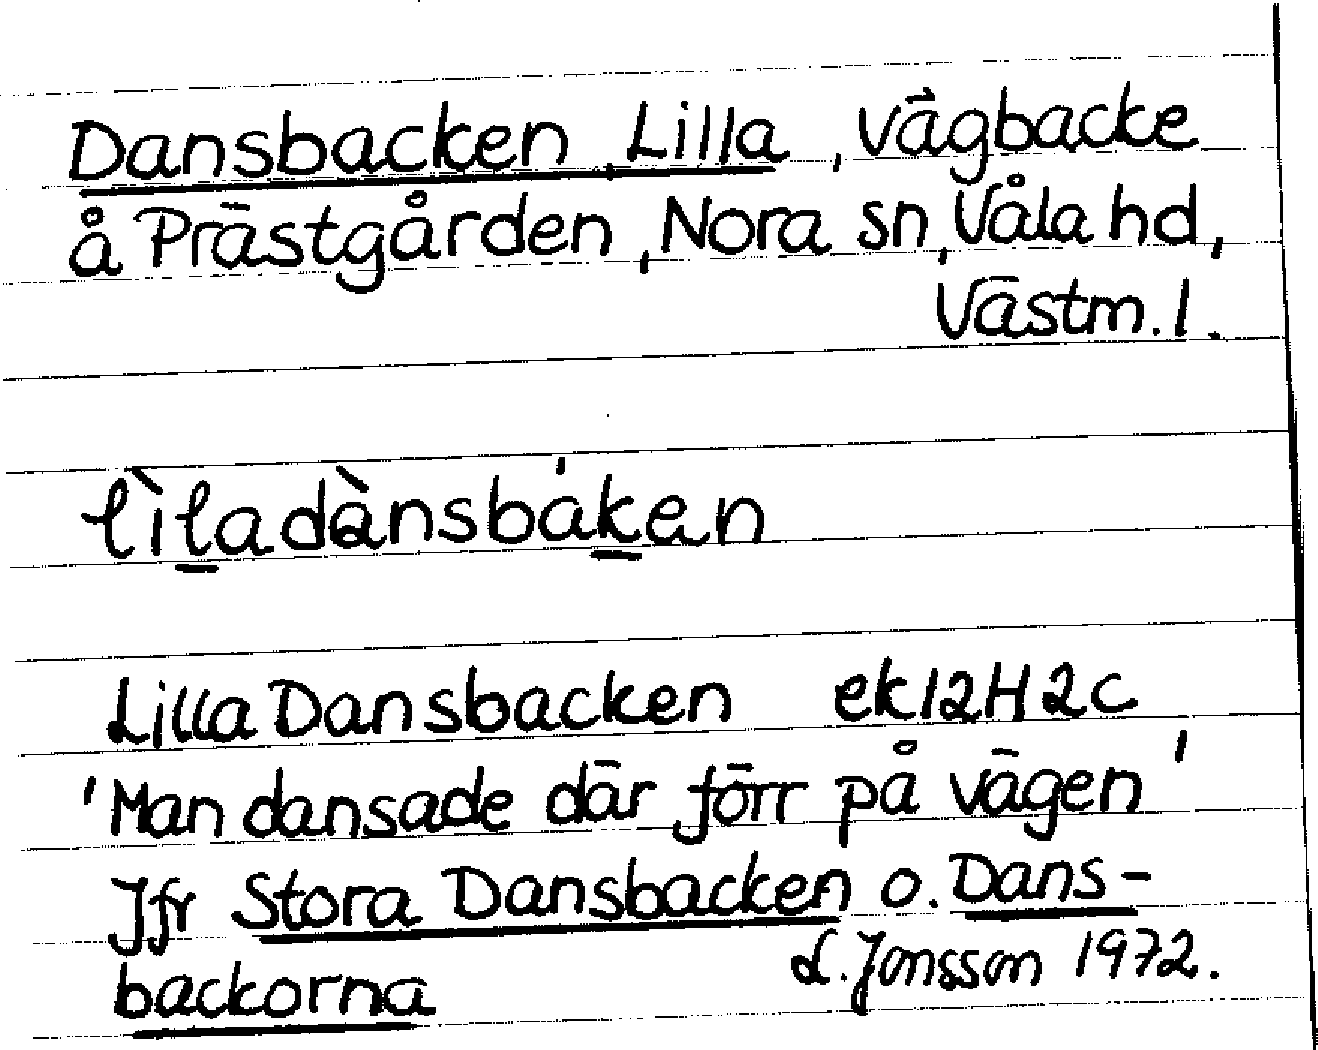 Dansbacken, Lilla, vägbacke
å Prästgården, Nora sn, Våla hd,
Västm. l.
lìladànsbáken
Lilla Dansbacken ek 12H2c
'Man dansade där förr på vägen'
Jfr Stora Dansbacken o. Dans-
backorna
L. Jonsson 1972.